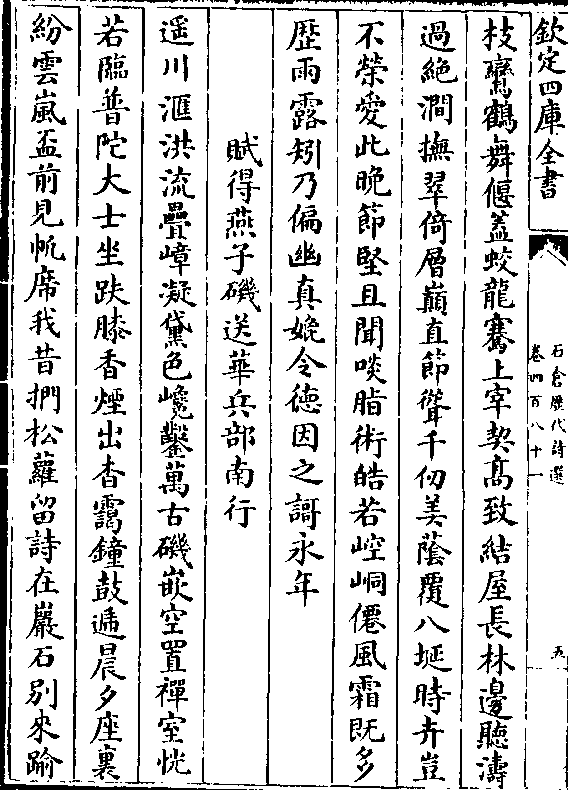 欽定四庫全書
石倉歷代詩選
卷四百八十一
五
枝鸞鶴舞偃蓋蛟龍騫上宰契髙致結屋長林邊聽濤
過絶澗撫翠倚層巔直節聳千仞美蔭覆八埏時卉豈
不榮愛此晩節堅且聞啖脂術皓若崆峒僊風霜既多
歴雨露矧乃偏幽真媲令徳因之謌永年
賦得燕子磯送華兵部南行
遥川滙洪流疊嶂凝黛色巉鑿萬古磯嵌空置禪室恍
若臨普陀大士坐趺膝香煙出杳靄鐘鼓逓晨夕座裏
紛雲嵐盃前見帆席我昔捫松蘿留詩在巖石别來踰